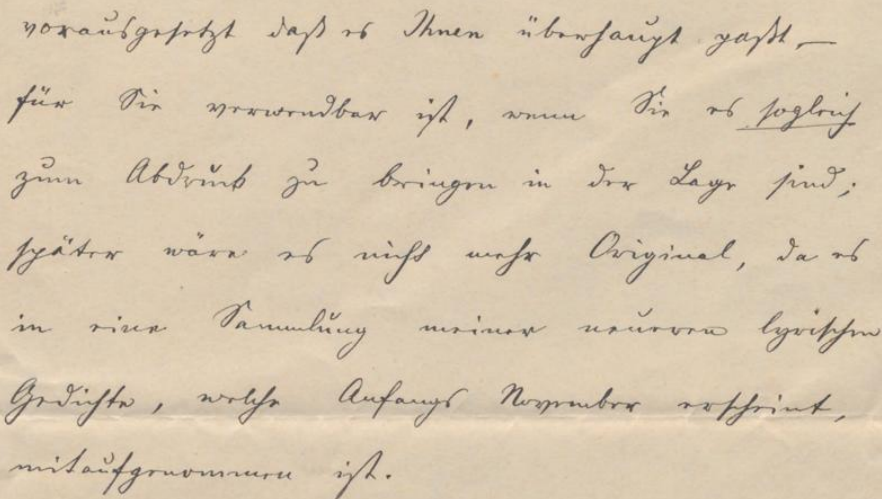 vorausgesetzt daß es Ihnen überhaupt paßt –
für Sie verwendbar ist, wenn Sie es sogleich
zum Abdruck zu bringen in der Lage sind;
später wäre es nicht mehr Original, da es
in eine Sammlung meiner neueren lyrischen
Gedichte, welche Anfangs November erscheint,
mitaufgenommen ist.